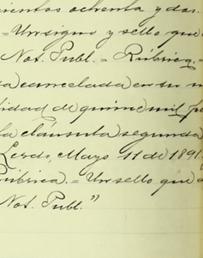 cientos ochenta y dos.
= Un signo y sello que
Not. Publ. = Rúbrica. =
da cancelada en su
lidad de quince mil
la cláusula segunda
Lerdo, Mayo 11 de 1891
Rúbrica. = Un sello que
Not. Publ."